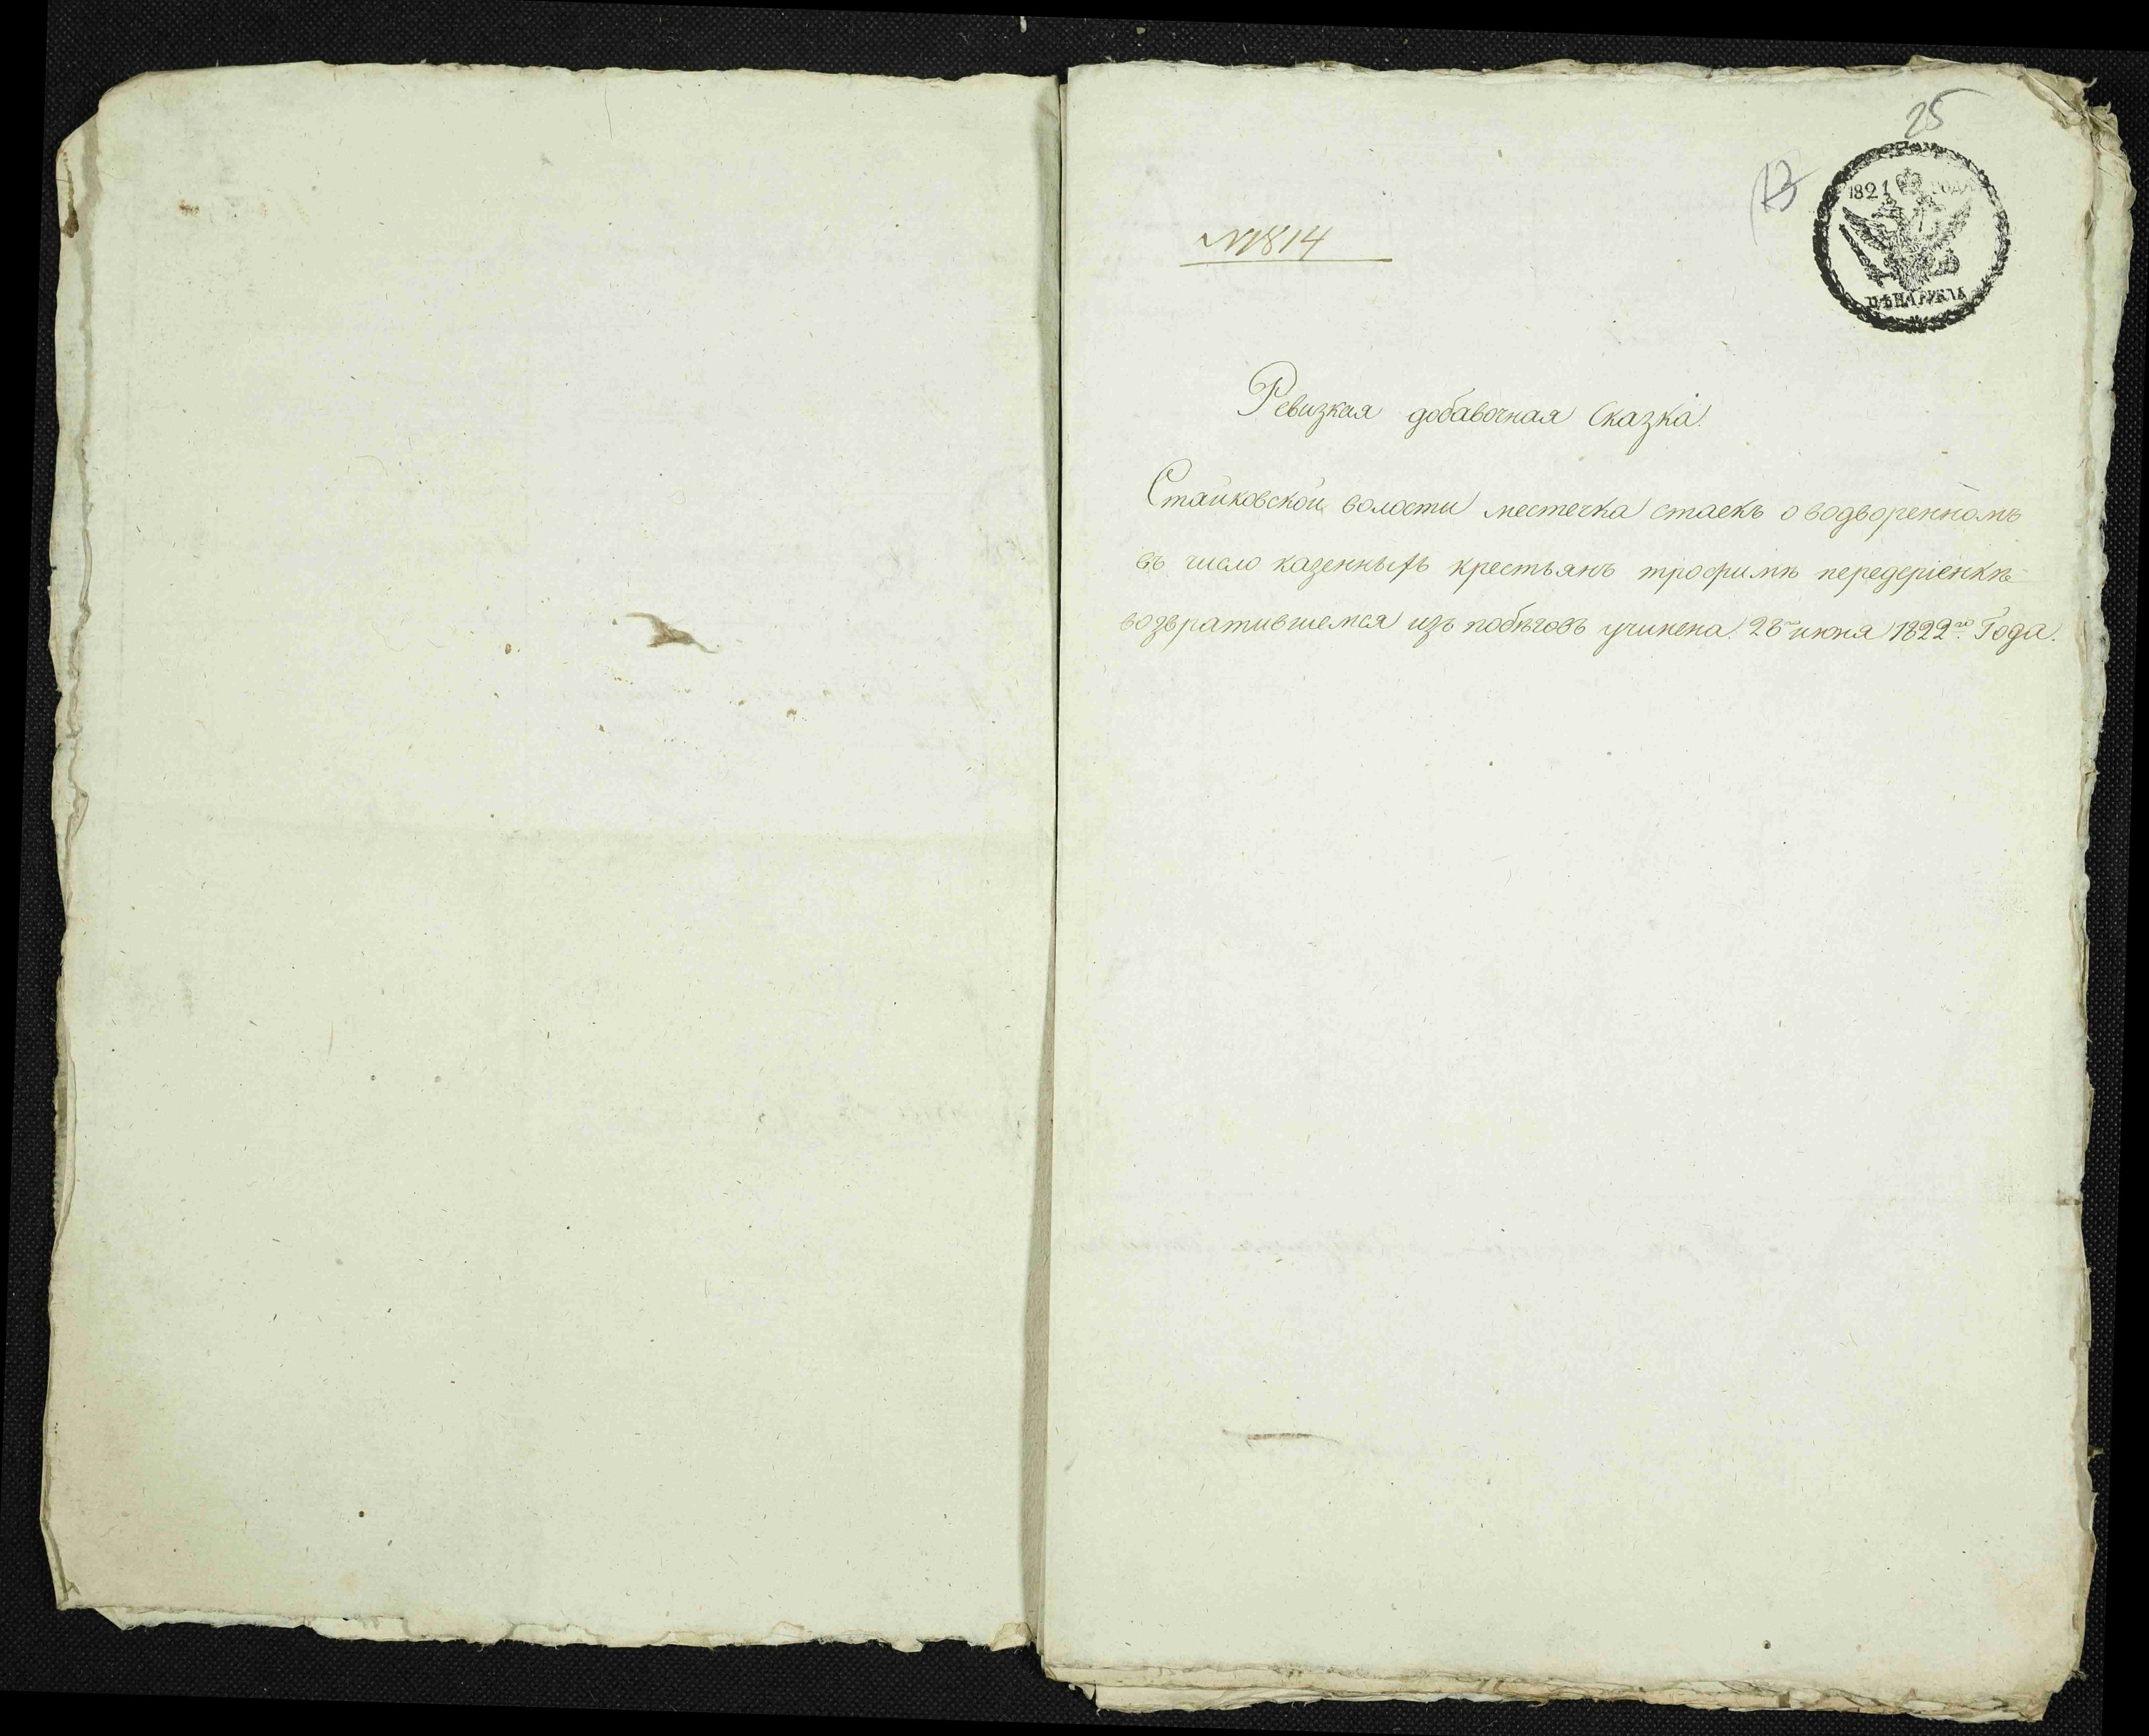 25
13
1821 ГОДА
ЦѢНА РУБЛЬ
№1814
Ревизкая добавочная Сказка!
Стайковской волости местечка стаекъ о водворенномъ
въ число казенныхъ крестьянъ трофимѣ передеріенкѣ
возвратившемся изъ побѣговъ учинена. 28го июня 1822го Года.